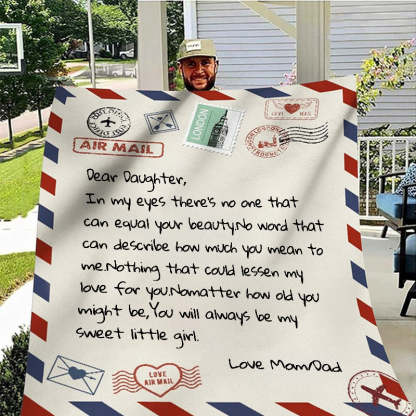 AIR MAIL
LONDON
LOVE MAIL
Dear Daughter,
In my eyes there's no one that
can equal your beauty.No word that
can describe how much you mean to
me.Nothing that could lessen my
love for you.Nomatter how old you
might be,You will always be my
sweet little girl.
Love Mom/Dad
LOVE
AIR MAIL